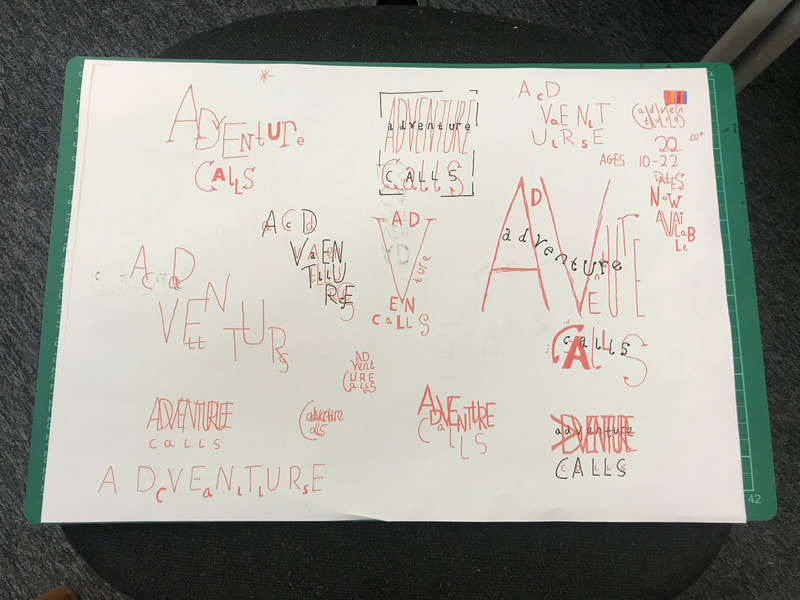 ADVENtURe
CALLS
ADVENTURE
adventure
CALLS
AcD
VaENlT
UlRsE
20
20*
AGES 10-22
DATES
NOW
AVAI
LaB
Le
AcD
VaEN
TllU
RsE
AD
V
EN
ture
CaLLS
AD
VENtURE
adventure
CALLS
AcDa
VEllN
TURs
AD
Vent
URE
CaLLS
ADVENTUREE
calls
adventure
Calls
ADVENTURE
CaLLS
ADVENTURE
adventure
CALLS
A DcVEaNlTlURsE
42